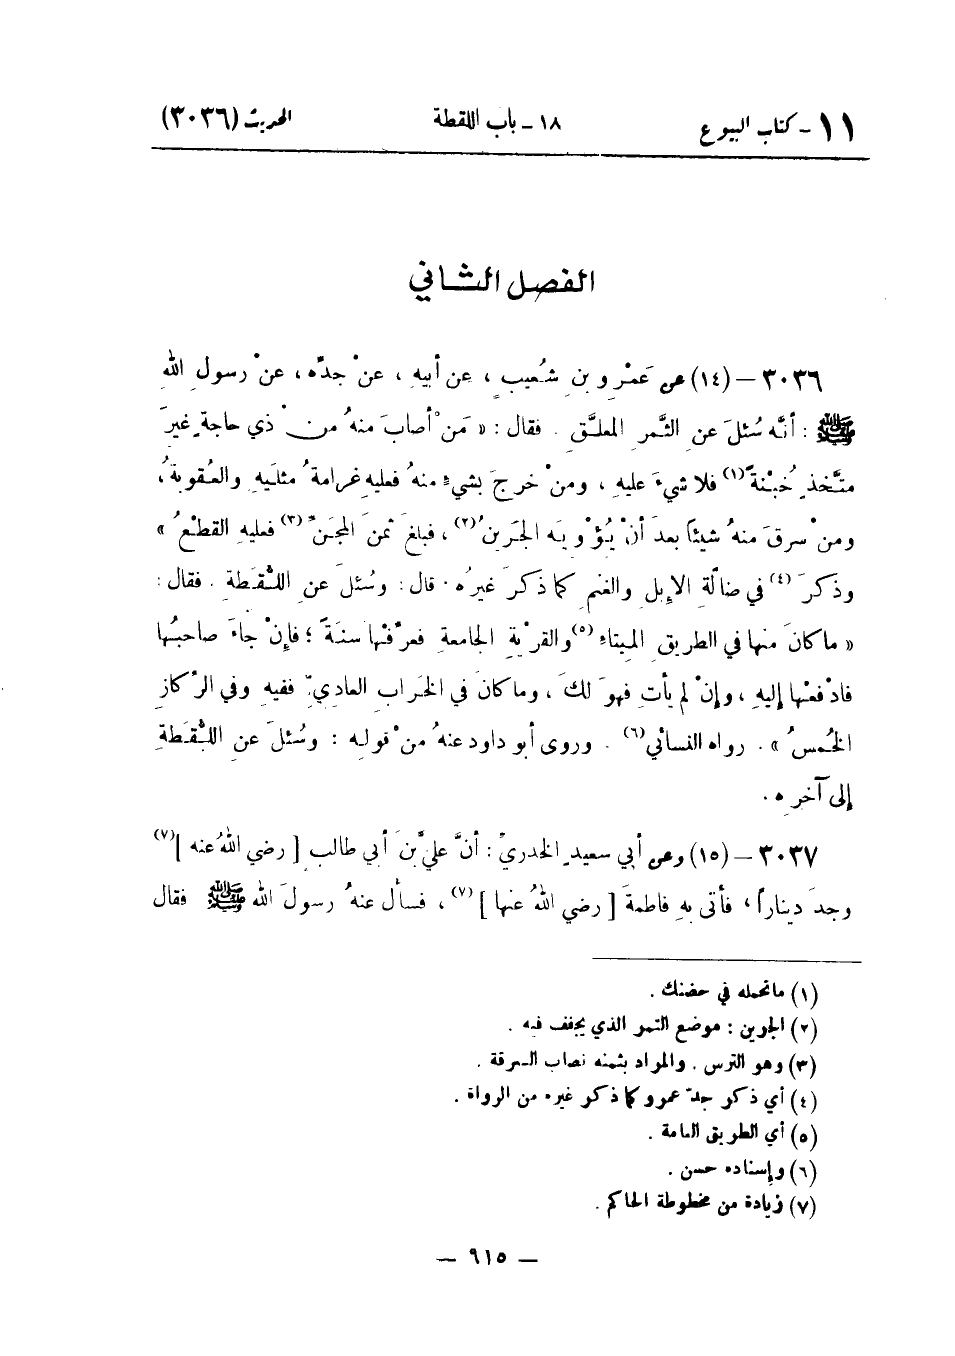 ١١ - كتاب البيوع ١٨ - باب اللقطة الحديث (٣٠٣٦)
الفصل الثاني
٣٠٣٦ – (١٤) عن عَمْرِو بنِ شُعيبٍ، عن أبيهِ، عنْ جدِّه، عنْ رسولِ اللهِ
ﷺ: أنَّه سُئلَ عنِ الثَّمرِ المعلَّقِ. فقال: « مَنْ أصابَ منهُ منْ ذي حاجةٍ غيرَ
متَّخذٍ خُبْنةً(١) فلا شيءَ عليهِ، ومنْ خرجَ بشيءٍ منهُ فعليهِ غرامةُ مثلَيهِ والعُقوبةُ،
ومنْ سرقَ منهُ شيئاً بعدَ أنْ يُؤْويَه الجَرينُ(٢)، فبلغَ ثمنَ المجَنِّ(٣) فعليهِ القطْعُ »
وذكرَ(٤) في ضالَّةِ الإِبلِ والغنمِ كما ذكرَ غيرُه. قال: وسُئلَ عنِ اللُّقَطةِ. فقال:
« ما كانَ منها في الطريقِ الميتاءِ(٥) والقريةِ الجامعةِ فعرِّفْها سنةً؛ فإِنْ جاءَ صاحبُها
فادْفعْها إليهِ، وإنْ لم يأتِ فهوَ لكَ، وما كانَ في الخَرابِ العاديِّ ففيهِ وفي الرِّكازِ
الخُمسُ ». رواه النسائي(٦). وروى أبو داود عنهُ منْ قولِه: وسُئلَ عنِ اللُّقَطةِ
إلى آخرِه.
٣٠٣٧ – (١٥) وعن أبي سعيدٍ الخدريِّ: أنَّ عليَّ بنَ أبي طالبٍ [ رضي اللهُ عنه ](٧)
وجدَ ديناراً، فأتى بهِ فاطمةَ [ رضي اللهُ عنها ](٧)، فسألَ عنهُ رسولَ اللهِ ﷺ فقال
(١) ما تحمله في حضنك.
(٢) الجرين: موضع التمر الذي يجفف فيه.
(٣) وهو الترس. والمراد بثمنه نصاب السرقة.
(٤) أي ذكر جدّ عمرو كما ذكر غيره من الرواة.
(٥) أي الطريق العامة.
(٦) وإسناده حسن.
(٧) زيادة من مخطوطة الحاكم.
— ٩١٥ —